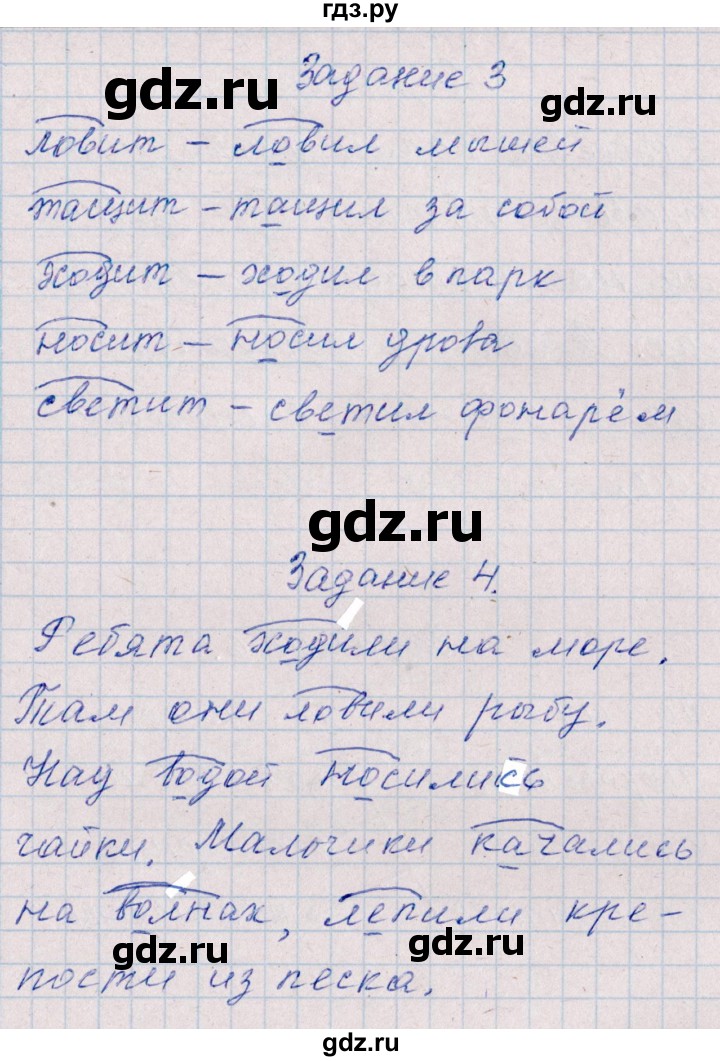 гдз.ру
Задание 3
gdz.ru gdz.ru
ловит – ловил мышей
тащит – тащил за собой
ходит – ходил в парк
носит – носил дрова
светит – светил фонарём
gdz.ru
Задание 4.
Ребята ходили на море.
Там они ловили рыбу.
Над водой носились
чайки. Мальчики качались
на волнах, лепили кре-
gdz.ru gdz.ru
пости из песка.
gdz.ru